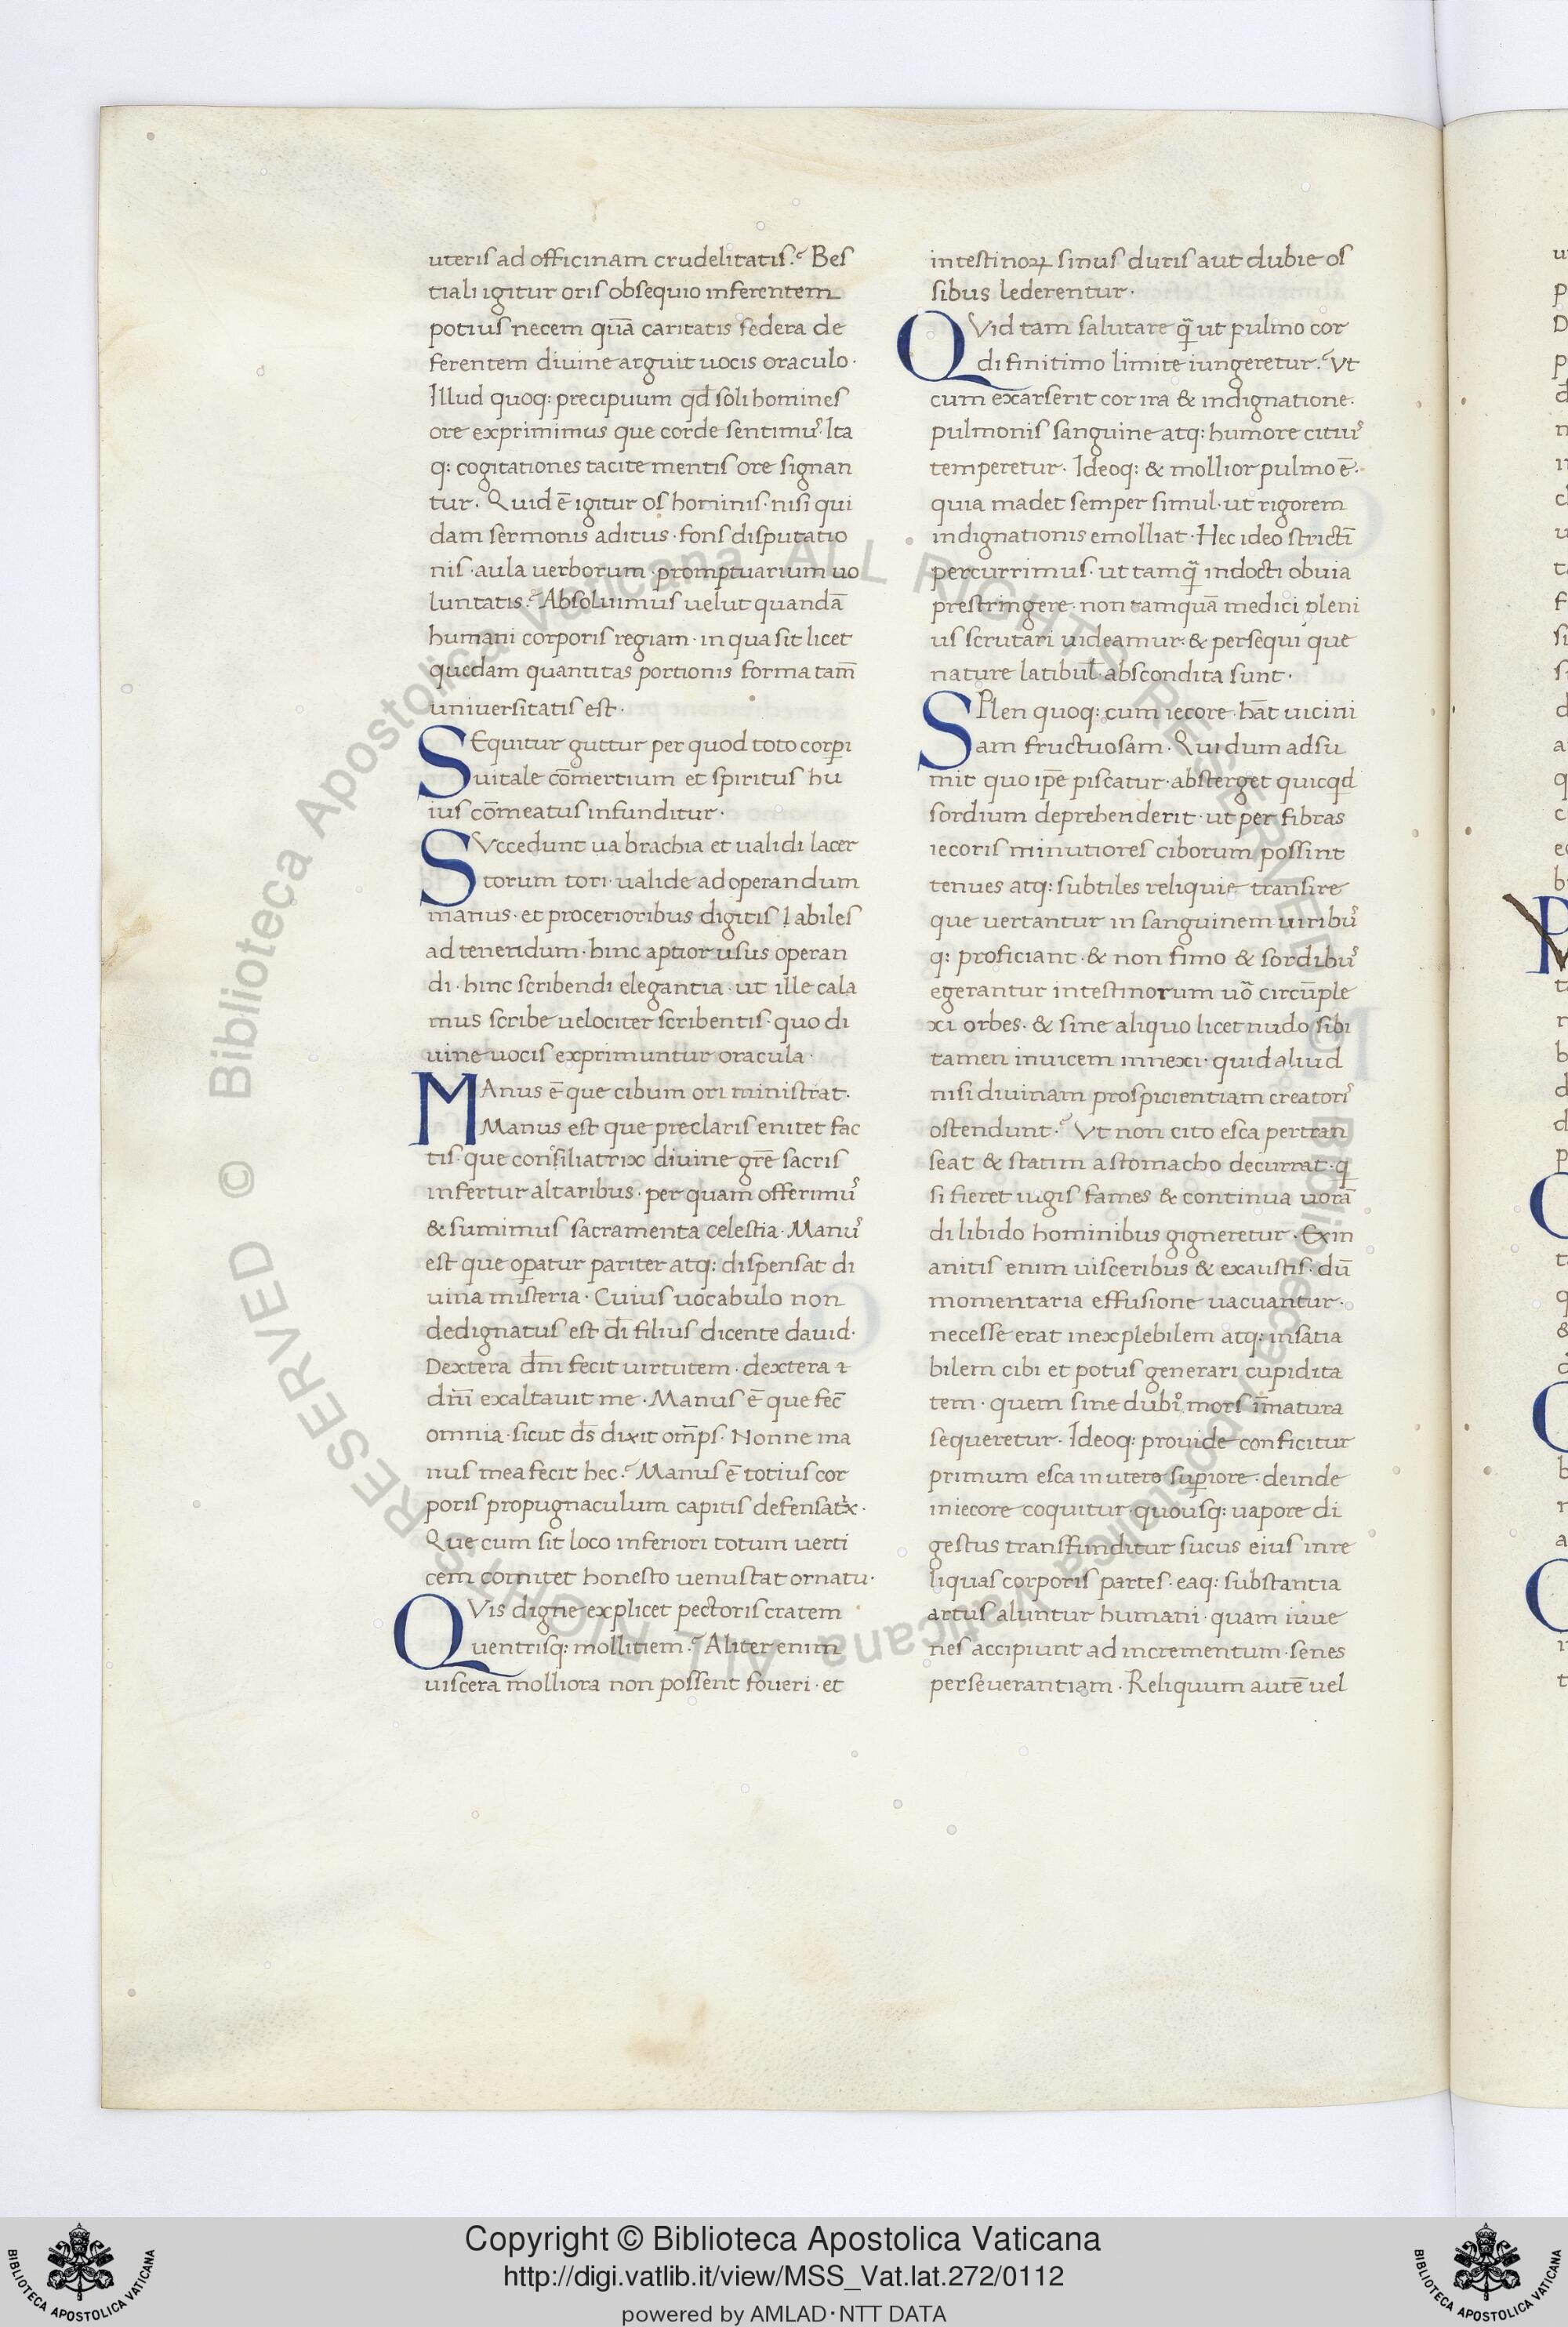 uteris ad officinam crudelitatis? Bes
tiali igitur oris obsequio inferentem
potius necem quā caritatis federa de
ferentem diuine arguit uocis oraculo·
Illud quoq: precipuum qd̄ soli homines
ore exprimimus que corde sentimꝰ· Ita
q: cogitationes tacite mentis ore signan
tur· Quid ē igitur os hominis· nisi qui
dam sermonis aditus· fons disputatio
nis· aula uerborum· promptuarium uo
luntatis? Absoluimus uelut quandā
humani corporis regiam· in qua sit licet
quedam quantitas portionis forma tam̄
uniuersitatis est·
SEquitur guttur per quod toto corpi
uitale cōmertium et spiritus hu
ius cōmeatus infunditur·
SVccedunt ua brachia et ualidi lacer
torum tori· ualide ad operandum
manus· et procerioribus digitis labiles
ad tenendum· hinc aptior usus operan
di· hinc scribendi elegantia· ut ille cala
mus scribe uelociter scribentis· quo di
uine uocis exprimuntur oracula·
MAnus ē que cibum ori ministrat·
Manus est que preclaris enitet fac
tis· que consiliatrix diuine grē sacris
infertur altaribus· per quam offerimꝰ
& sumimus sacramenta celestia· Manꝰ
est que opatur pariter atq: dispensat di
uina misteria· Cuius uocabulo non
dedignatus est di̅ filius dicente dauid·
Dextera dn̄i fecit uirtutem· dextera
dn̄i exaltauit me· Manus ē que fec̄
omnia· sicut ds̄ dixit om̄ps· Nonne ma
nus mea fecit hec? Manus ē totius cor
poris propugnaculum capitis defensatͥx·
Que cum sit loco inferiori totum uerti
cem comitet honesto uenustat ornatu·
QVis digne explicet pectoris cratem
uentrisq: mollitiem? Aliter enim
uiscera molliora non possent foueri· et
intestinoꝝ sinus duris aut dubie os
sibus lederentur·
QVid tam salutare q̄ ut pulmo cor
di finitimo limite iungeretur? Vt
cum exarserit cor ira & indignatione·
pulmonis sanguine atq: humore citiꝰ
temperetur· Ideoq: & mollior pulmo ē·
quia madet semper simul· ut rigorem
indignationis emolliat· Hec ideo stricti̅
percurrimus· ut tamq̄ indocti obuia
prestringere· non tamquā medici pleni
us scrutari uideamur· & persequi que
nature latibul̄ abscondita sunt·
SPlen quoq: cum iecore· hāt uicini
am fructuosam· Qui dum adsu
mit quo ip̄e piscatur· absterget quicqd
sordium deprehenderit· ut per fibras
iecoris minutiores ciborum possint
tenues atq: subtiles reliquie transire
que uertantur in sanguinem uiribꝰ
q: proficiant· & non fimo & sordibꝰ
egerantur intestinorum uo̅ circūple
xi orbes· & sine aliquo licet nudo sibi
tamen inuicem innexi· quid aliud
nisi diuinam prospicientiam creatorꝰ
ostendunt? Vt non cito esca pertran
seat & statim a stomacho decurrat· q
si fieret iugis fames & continua uorā
di libido hominibus gigneretur· Exin
anitis enim uisceribus & exaustis· dū
momentaria effusione uacuantur·
necesse erat inexplebilem atq: insatia
bilem cibi et potus generari cupidita
tem· quem sine dubꝰ mors īmatura
sequeretur· Ideoq: prouide conficitur
primum esca in utero supiore· deinde
in iecore coquitur· quousq: uapore di
gestus transfunditur sucus eius in re
liquas corporis partes· eaq: substantia
artus aluntur humani· quam iuue
nes accipiunt ad incrementum· senes
perseuerantiam· Reliquum autē uel
Copyright © Biblioteca Apostolica Vaticana
http://digi.vatlib.it/view/MSS_Vat.lat.272/0112
powered by AMLAD·NTT DATA
BIBLIOTECA APOSTOLICA VATICANA
BIBLIOTECA APOSTOLICA VATICANA
© Biblioteca Apostolica Vaticana ALL RIGHTS RESERVED
© Biblioteca Apostolica Vaticana ALL RIGHTS RESERVED